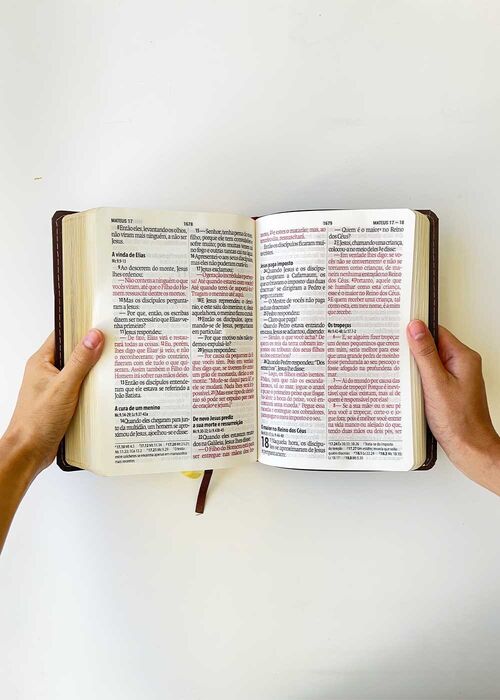 MATEUS 17
1678
8 Então eles, levantando os olhos,
não viram mais ninguém, a não ser
Jesus.
A vinda de Elias
Mc 9.9-13
9 Ao descerem do monte, Jesus
lhes ordenou:
— Não contem a ninguém o que
vocês viram, até que o Filho do Ho-
mem ressuscite dentre os mortos.
10 Mas os discípulos pergunta-
ram a Jesus:
— Por que, então, os escribas
dizem ser necessário que Elias ve-
nha primeiro?
11 Jesus respondeu:
— De fato, Elias virá e restau-
rará todas as coisas. 12 Eu, porém,
lhes digo que Elias já veio, e não
o reconheceram; pelo contrário,
fizeram com ele tudo o que qui-
seram. Assim também o Filho do
Homem irá sofrer nas mãos deles.
13 Então os discípulos entende-
ram que ele estava se referindo a
João Batista.
A cura de um menino
Mc 9.14-29; Lc 9.37-43
14 Quando eles chegaram para jun-
to da multidão, um homem se apro-
ximou de Jesus, ajoelhou-se e disse:
15 — Senhor, tenha pena do meu
filho, porque ele tem convulsões e
sofre muito; pois muitas vezes cai
no fogo e outras tantas na água.
16 Apresentei-o aos seus discípulos,
mas eles não puderam curá-lo.
17 Jesus exclamou:
— Ó geração incrédula e perver-
sa! Até quando estarei com vocês?
Até quando terei de suportá-los?
Tragam o menino aqui.
18 E Jesus repreendeu o demônio,
e este saiu do menino; e, desde
aquela hora, o menino ficou curado.
19 Então os discípulos, aproxi-
mando-se de Jesus, perguntaram
em particular:
— Por que motivo nós não pu-
demos expulsá-lo?
20 Jesus respondeu:
— Por causa da pequena fé que
vocês têm. Pois em verdade lhes
digo que, se tiverem fé como um
grão de mostarda, dirão a este
monte: "Mude-se daqui para lá",
e ele se mudará. Nada lhes será
impossível. 21 [Mas esse tipo de demô-
nio só pode ser expulso por meio
de oração e jejum.]
De novo Jesus prediz
a sua morte e ressurreição
Mc 9.30-32; Lc 9.43b-45
22 Quando eles estavam reunidos
na Galileia, Jesus lhes disse:
— O Filho do Homem está para
ser entregue nas mãos dos ho-
1679
MATEUS 17 — 18
mens, 23 e estes o matarão; mas, ao
terceiro dia, ressuscitará.
Então os discípulos ficaram mui-
to tristes.
Jesus paga imposto
24 Quando Jesus e os discípu-
los chegaram a Cafarnaum, os
que cobravam o imposto das duas
dracmas se dirigiram a Pedro e
perguntaram:
— O Mestre de vocês não paga
as duas dracmas?
25 Pedro respondeu:
— Claro que paga!
Quando Pedro estava entrando
em casa, Jesus se adiantou, dizendo:
— Simão, o que você acha? De
quem os reis da terra cobram im-
postos ou tributo: dos seus filhos
ou dos estranhos?
26 Quando Pedro respondeu: "Dos
estranhos", Jesus lhe disse:
— Logo, os filhos estão isentos.
27 Mas, para que não os escanda-
lizemos, vá ao mar, jogue o anzol
e puxe o primeiro peixe que fisgar.
Ao abrir a boca do peixe, você en-
contrará uma moeda. Pegue essa
moeda e entregue aos cobradores,
para pagar o meu imposto e o seu.
O maior no Reino dos Céus
Mc 9.33-37; Lc 9.46-48
18 Naquela hora, os discípu-
los se aproximaram de Jesus
e perguntaram:
— Quem é o maior no Reino
dos Céus?
2 E Jesus, chamando uma criança,
colocou-a no meio deles 3 e disse:
— Em verdade lhes digo: se vo-
cês não se converterem e não se
tornarem como crianças, de ma-
neira nenhuma entrarão no Reino
dos Céus. 4 Portanto, aquele que
se humilhar como esta criança,
esse é o maior no Reino dos Céus.
5 E quem receber uma criança, tal
como esta, em meu nome, é a mim
que recebe.
Os tropeços
Mc 9.42-48; Lc 17.1-2
6 — E, se alguém fizer tropeçar
um destes pequeninos que creem
em mim, seria melhor para esse
que uma grande pedra de moinho
fosse pendurada ao seu pescoço e
fosse afogado na profundeza do
mar.
7 — Ai do mundo por causa das
pedras de tropeço! Porque é inevi-
tável que elas existam, mas ai de
quem é responsável por elas!
8 — Se a sua mão ou o seu pé
leva você a tropeçar, corte-o e jo-
gue-o fora, pois é melhor você en-
trar na vida manco ou aleijado do
que, tendo duas mãos ou dois pés, ser